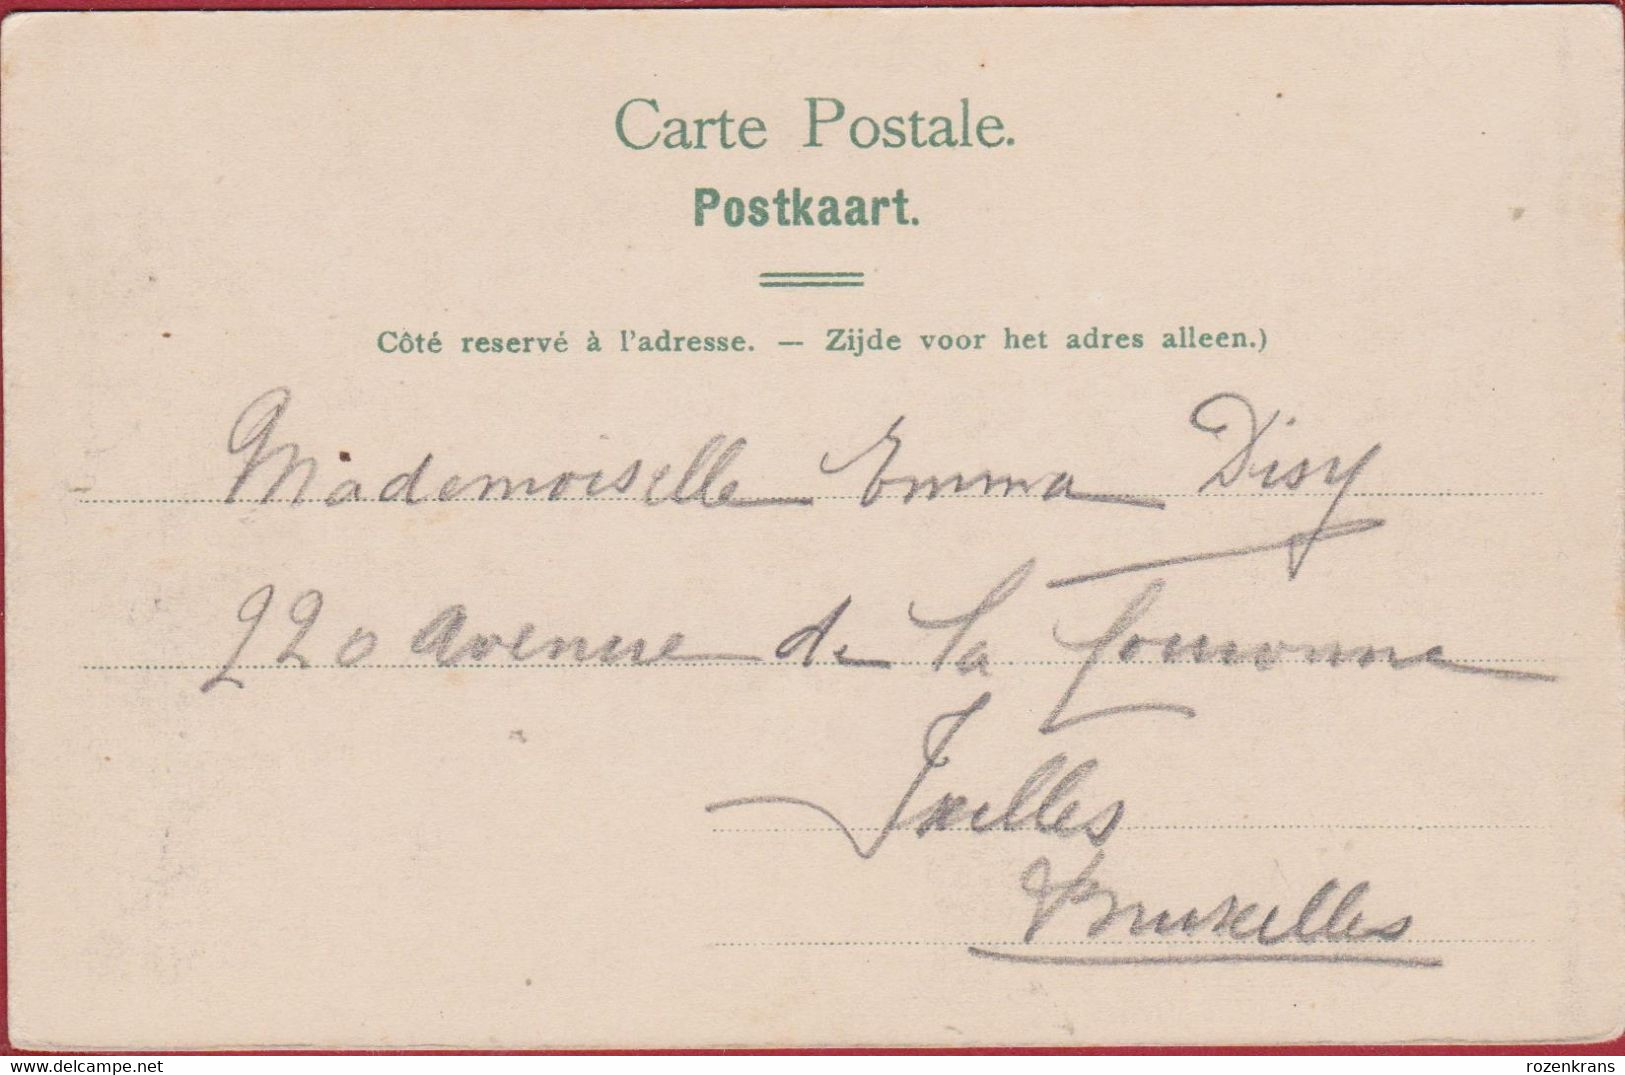 Carte Postale.
Postkaart.
Côté reservé à l'adresse. — Zijde voor het adres alleen.)
Mademoiselle Emma Disy
220 Avenue de la Couronne
Ixelles
Bruxelles
delcampe.net
rozenkrans